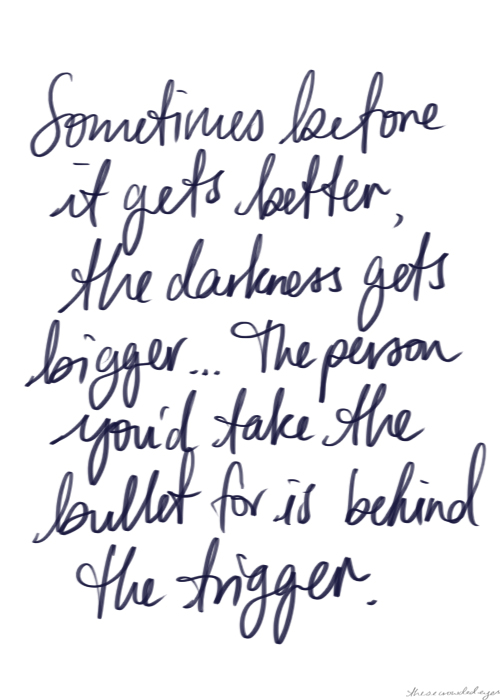 Sometimes before
it gets better,
the darkness gets
bigger... The person
you'd take the
bullet for is behind
the trigger.
thesecrowdedeyes